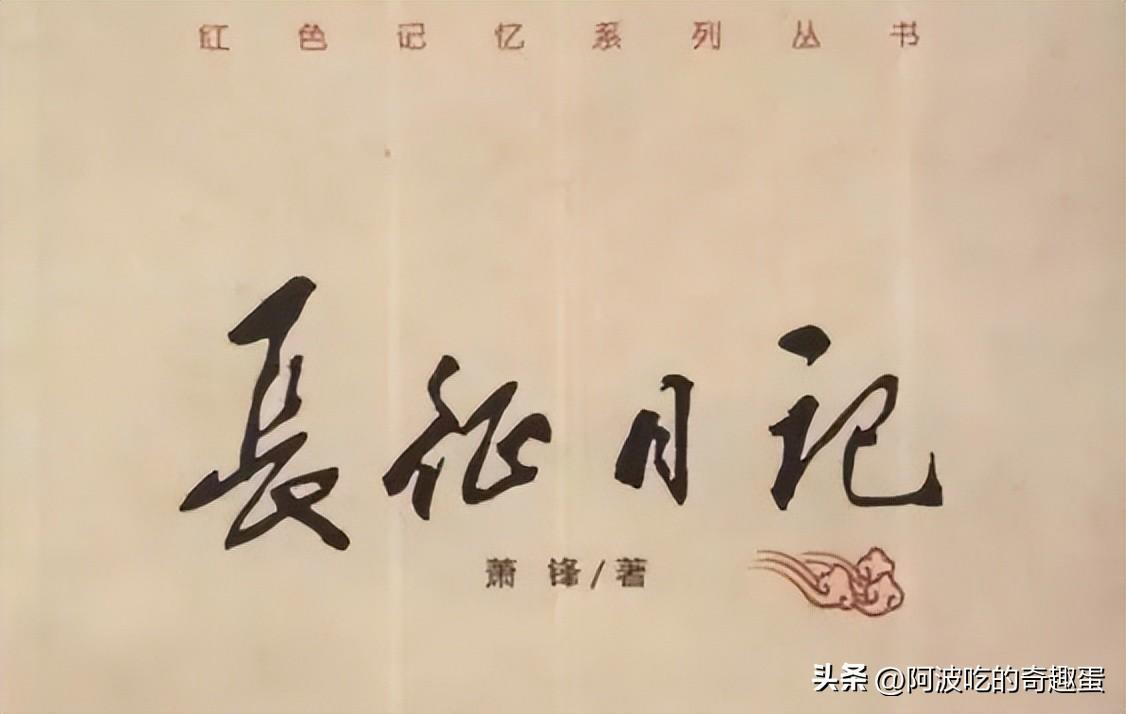 红色记忆系列丛书
長征日记
萧锋/著
头条 @阿波吃的奇趣蛋